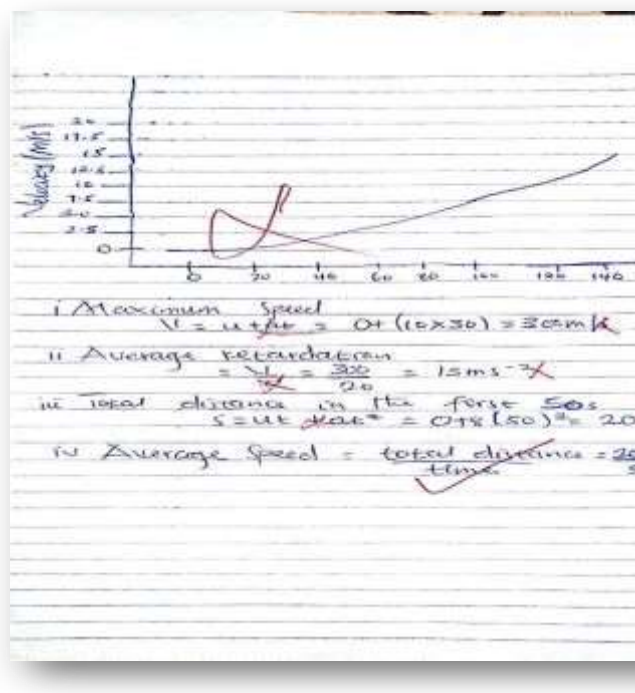 Velocity (m/s)
20
17.5
15
12.5
10
7.5
5.0
2.5
0
0 20 40 60 80 100 120 140
i Maximum Speed
V = u + at = 0 + (10x30) = 300m/s
ii Average retardation
= V = 300 = 15ms⁻²
20
iii Total distance in the first 50s
S = ut + at² = 0+8(50)² = 20
iv Average Speed = total distance = 20
time